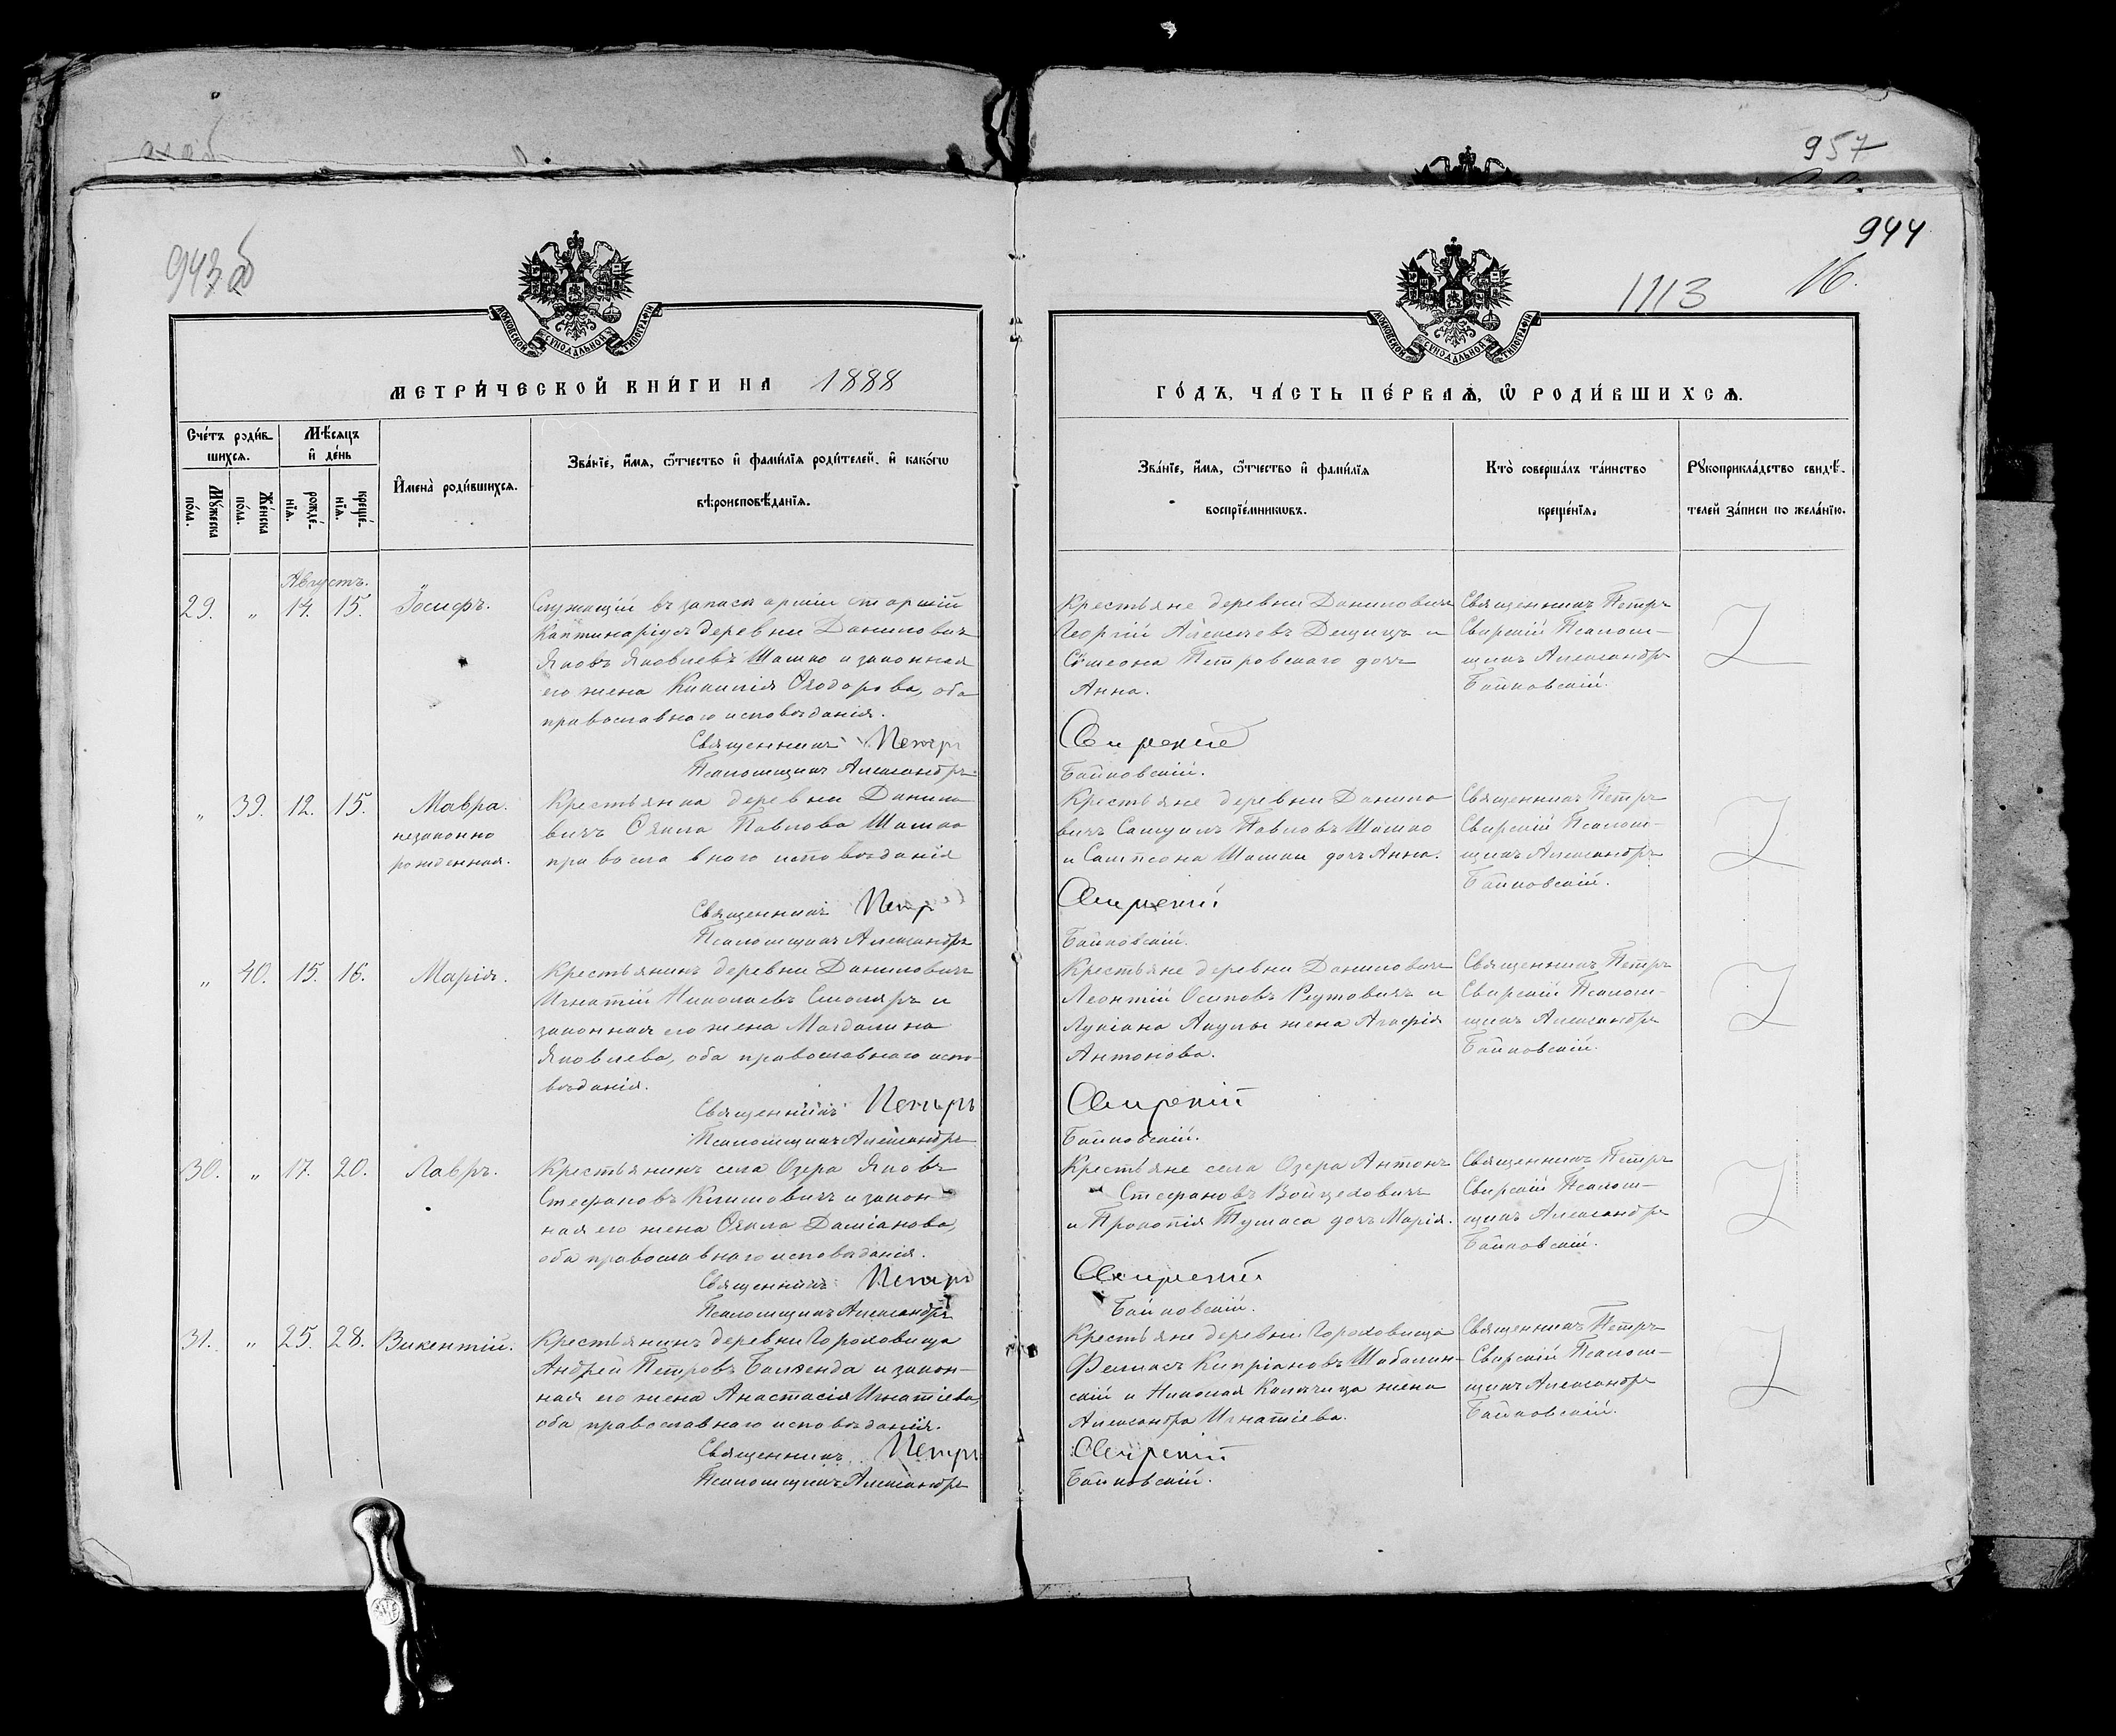 957
943 об
944
1113
16.
МОСКОВСКОЙ СѴНОДАЛЬНОЙ ТИПОГРАФІИ
МОСКОВСКОЙ СѴНОДАЛЬНОЙ ТИПОГРАФІИ
МЕТРИ́ЧЕСКОЙ КНИ́ГИ НА 1888
ГО́ДЪ, ЧА́СТЬ ПЕ́РВАѦ, Ѡ҆ РОДИ́ВШИХСѦ.
Сче́тъ роди́в-
шихсѧ.
Мꙋ́жеска
по́ла.
Же́нска
по́ла.
Мѣ́сѧцъ
и҆ де́нь
рожде́-
нїѧ.
креще́-
нїѧ.
И҆мена̀ роди́вшихсѧ.
Зва́нїе, и҆́мѧ, ѻ҆́тчество и҆ фами́лїѧ роди́телей, и҆ како́гѡ
вѣроисповѣ́данїѧ.
Зва́нїе, и҆́мѧ, ѻ҆́тчество и҆ фами́лїѧ
воспрїе́мникѡвъ.
Кто̀ соверша́лъ та́инство
креще́нїѧ.
Рꙋкоприкла́дство свидѣ́-
телей за́писи по жела́нїю.
Августъ.
29. " 14. 15. Іосифъ.
Служащій въ запасѣ арміи старшій
деревни Даниловичъ
Яковъ Яковлевъ Машко и законная
его жена Киликія Ѳеодорова, оба
православнаго исповѣданія.
Священникъ Петръ
Псаломщикъ Александръ
Крестьяне деревни Даниловичъ
Георгій Алексѣевъ Дещицъ и
Сѵмеона Петровскаго дочь
Анна.
Свирскій
Байковскій.
Священникъ Петръ
Свирскій Псалом-
щикъ Александръ
Байковскій.
" 39. 12. 15. Мавра.
незаконно
рожденная.
Крестьянка деревни Данило
вичъ Ѳекла Павлова Машко
православнаго исповѣданія
Священникъ Петръ
Псаломщикъ Александръ
Крестьяне деревни Данило
вичъ Самуилъ Павловъ Машко
и Сампсона Машки дочь Анна.
Свирскій
Байковскій.
Священникъ Петръ
Свирскій Псалом-
щикъ Александръ
Байковскій.
" 40. 15. 16. Марія.
Крестьянинъ деревни Даниловичъ
Игнатій Николаевъ Смоляръ и
законная его жена Магдалина
Яковлева, оба православнаго испо-
вѣданія.
Священникъ Петръ
Псаломщикъ Александръ
Крестьяне деревни Даниловичъ
Леонтій Осиповъ Реутовичъ и
Лукіана Акулы жена Агафія
Антонова.
Свирскій
Байковскій.
Священникъ Петръ
Свирскій Псалом-
щикъ Александръ
Байковскій.
30. " 17. 20. Лавръ.
Крестьянинъ села Озера Яковъ
Стефановъ Климовичъ и закон-
ная его жена Ѳекла Даміанова,
оба православнаго исповѣданія.
Священникъ Петръ
Псаломщикъ Александръ
Крестьяне села Озера Антонъ
Стефановъ Войцеховичъ
и Прокопія Тумаса дочь Марія.
Свирскій
Байковскій.
Священникъ Петръ
Свирскій Псалом-
щикъ Александръ
Байковскій.
31. " 25. 28. Викентій.
Крестьянинъ деревни Гороховища
Андрей Петровъ Балженда и закон-
ная его жена Анастасія Игнатіева,
оба православнаго исповѣданія.
Священникъ Петръ
Псаломщикъ Александръ
Крестьяне деревни Гороховища
Феликсъ Кипріановъ Шабалин-
скій и Николая Калачица жена
Александра Игнатіева.
Свирскій
Байковскій.
Священникъ Петръ
Свирскій Псалом-
щикъ Александръ
Байковскій.